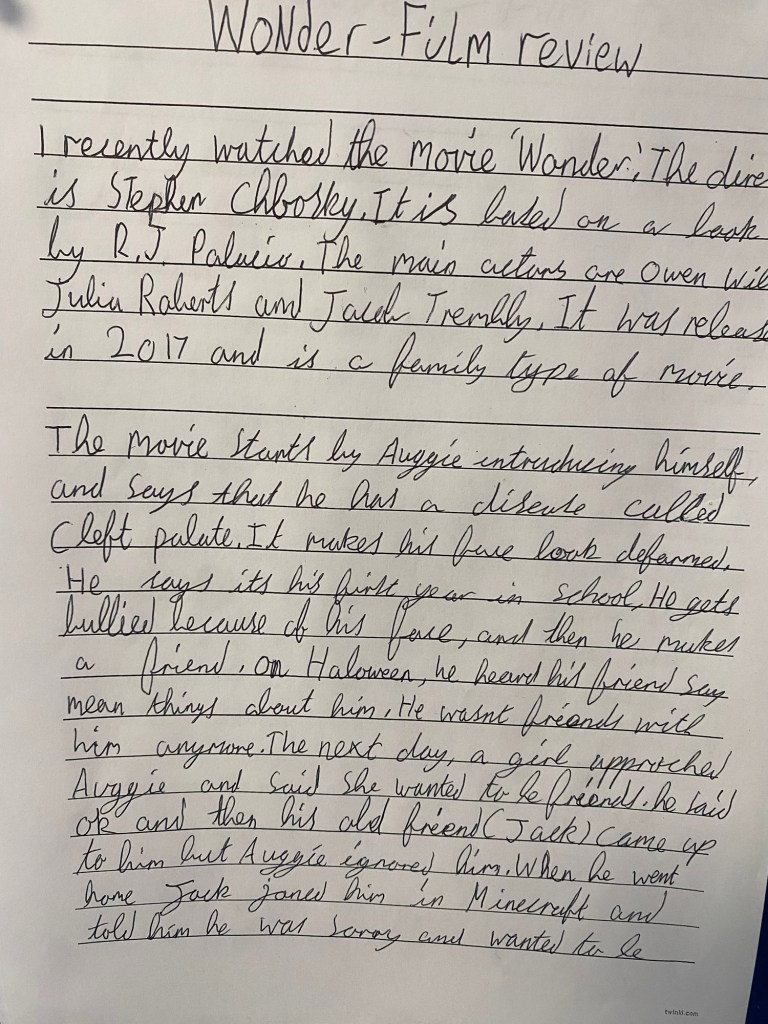 Wonder-Film review
I recently watched the movie 'Wonder'. The dire
is Stephen Chbosky. It is based on a book
by R.J. Palacio. The main actors are Owen Wil
Julia Roberts and Jacob Trembly. It was release
in 2017 and is a family type of movie.
The movie starts by Auggie introducing himself,
and says that he has a disease called
Cleft palate. It makes his face look deformed.
He says its his first year in school, He gets
bullied because of his face, and then he makes
a friend. on Haloween, he heard his friend say
mean things about him. He wasnt friends with
him anymore. The next day, a girl approched
Auggie and said she wanted to be friends. he said
ok and then his old friend (Jack) came up
to him but Auggie ignored him. When he went
home Jack joned him in Minecraft and
told him he was sorry and wanted to be
twinkl.com